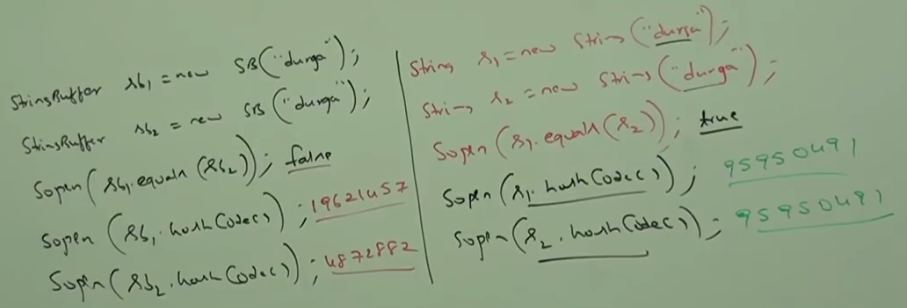 StringBuffer sb1 = new SB("durga");
StringBuffer sb2 = new SB("durga");
Sopln(sb1.equals(sb2)); false
Sopln(sb1.hashCode()); 19621457
Sopln(sb2.hashCode()); 4872882
String s1 = new String("durga");
String s2 = new String("durga");
Sopln(s1.equals(s2)); true
Sopln(s1.hashCode()); 95950491
Sopln(s2.hashCode()); 95950491